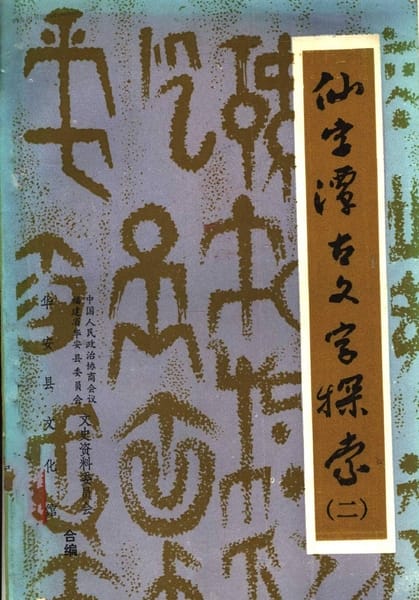 仙字潭古文字探索
(二)
中国人民政治协商会议
福建省华安县委员会
文史资料委员会
华安县文化馆
合编